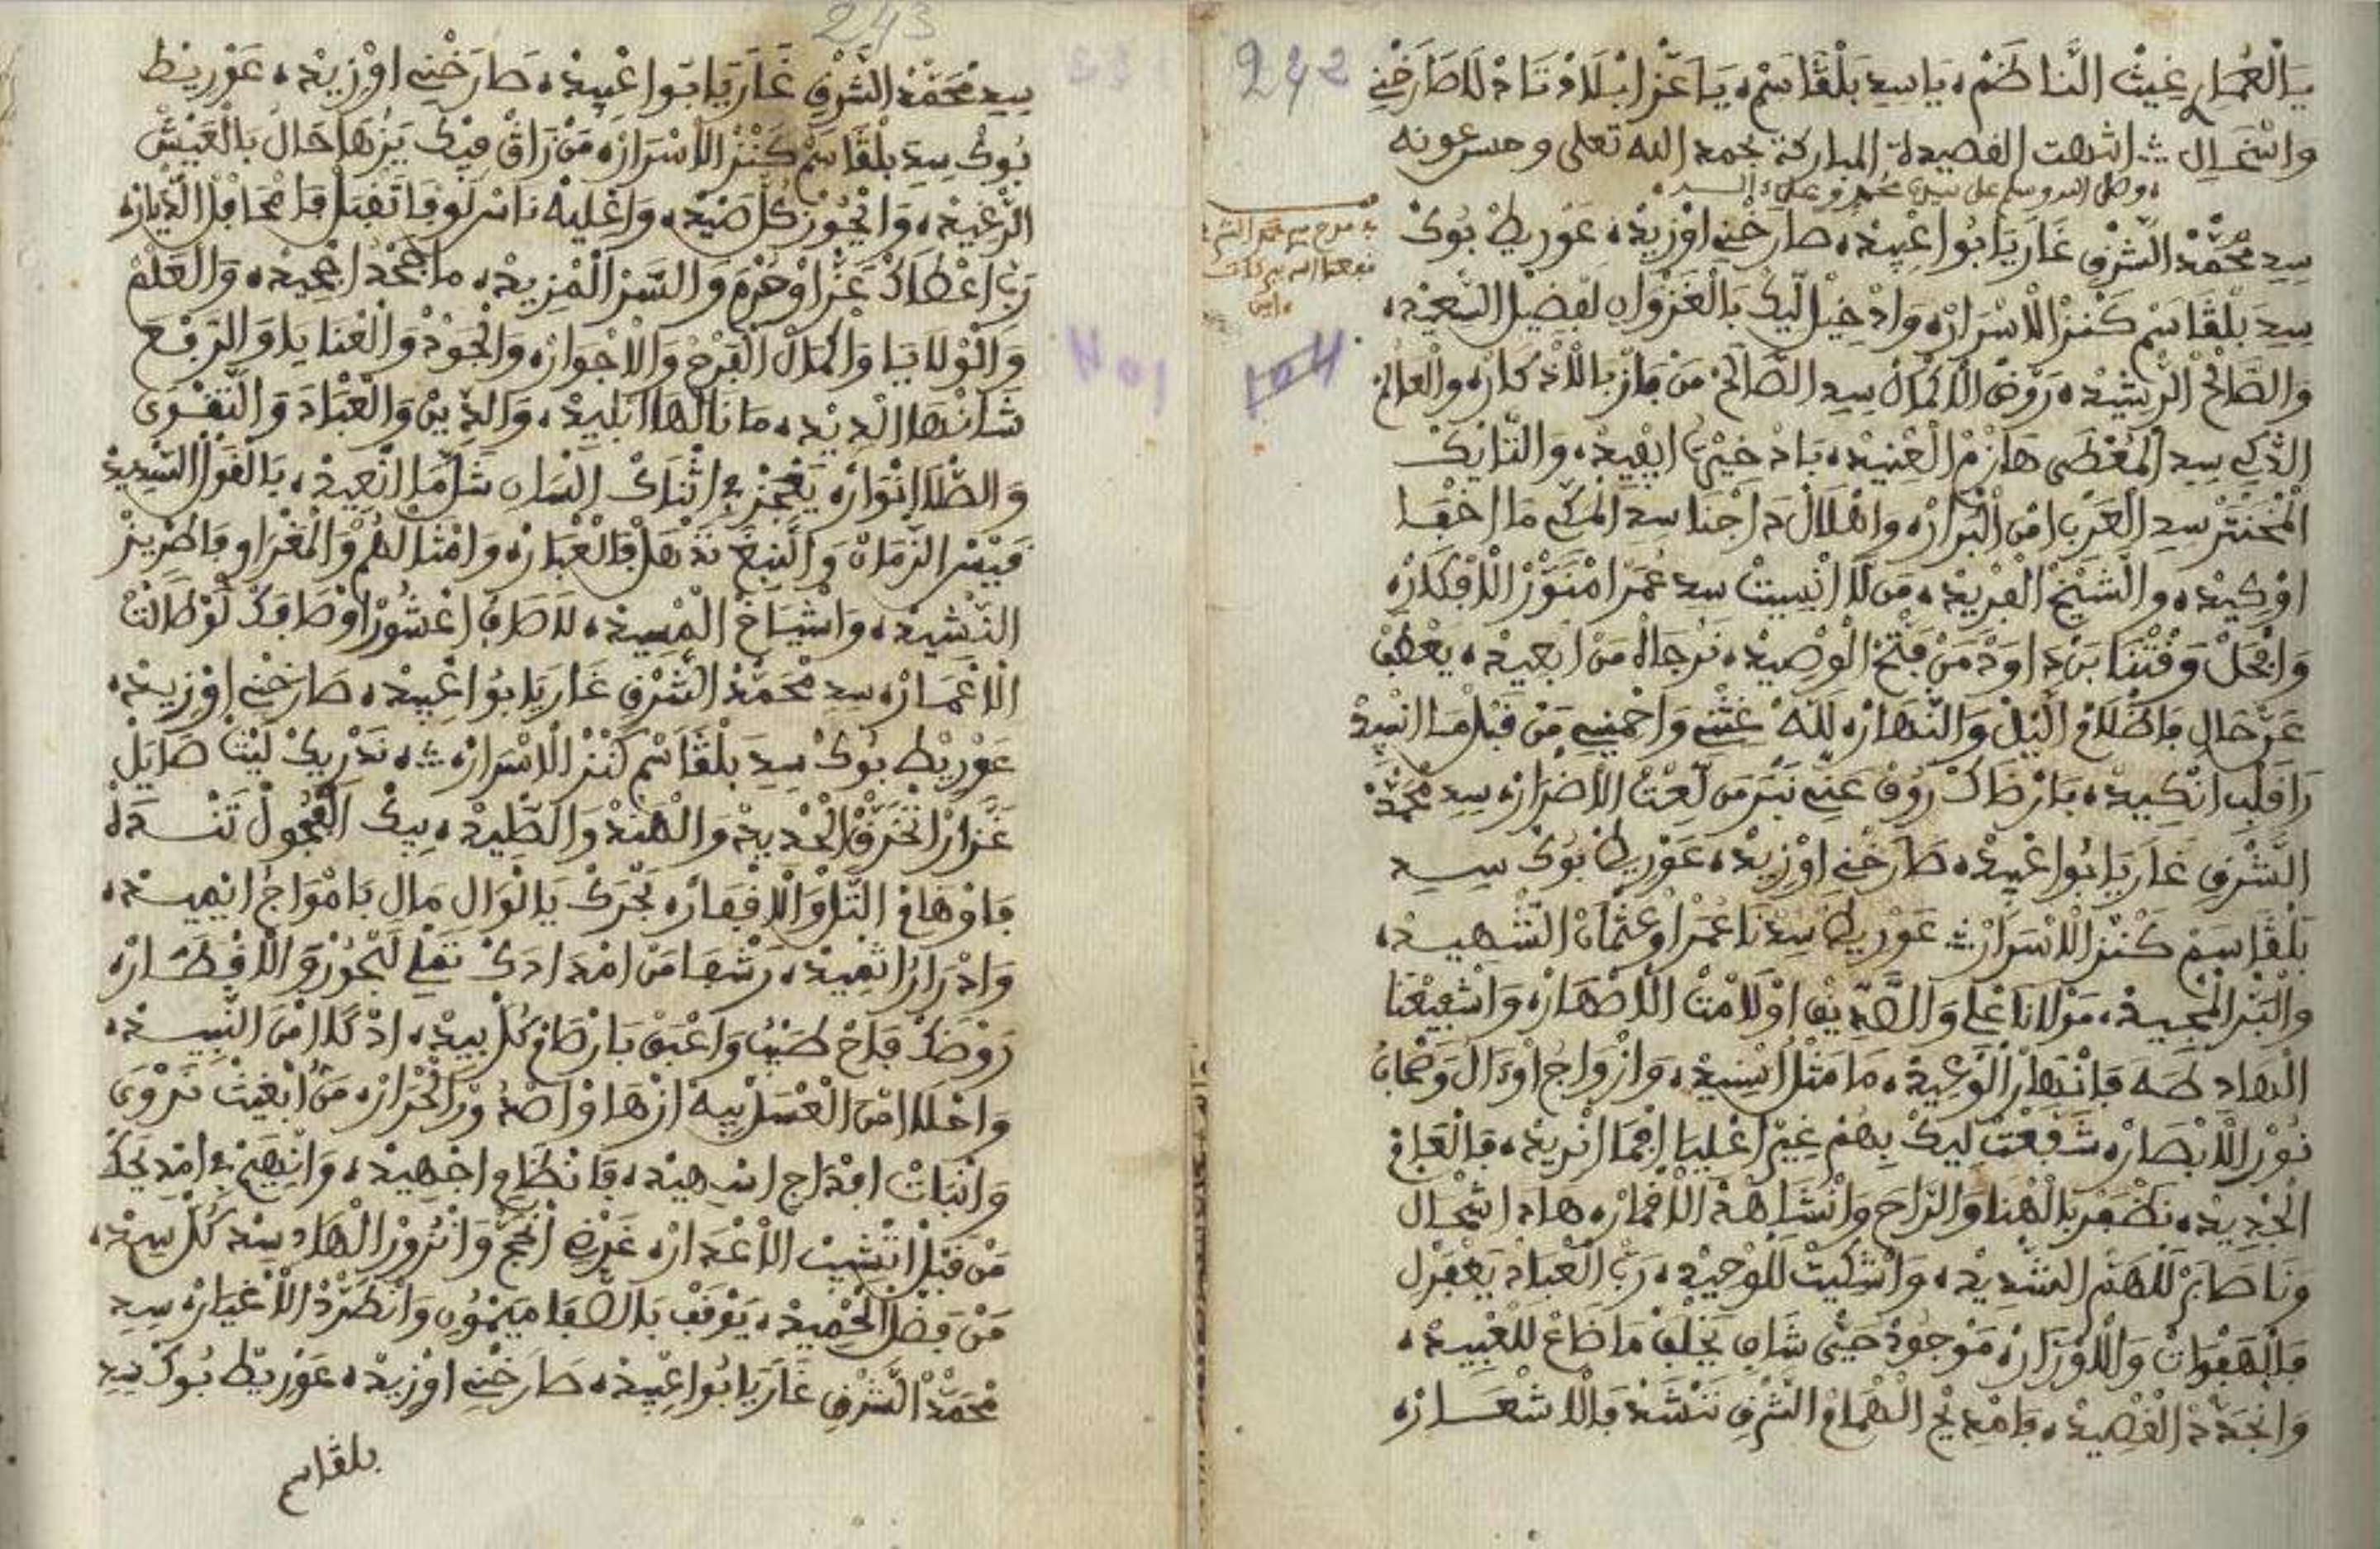 242
يَالْعُمَارِ غِيثْ النَّاظَمْ، يَاسِيدِ بَلْقَاسَمْ، يَاعَزْ ابْلَادْ تَادْلَا صَارَخْنِي
وانْتْحَالِي ∴ انتهت القصيدة المباركة بحمد الله تعلى وحسن عونه
وصلى الله وسلم على سيدنا محمد وعلى ءاله
سِيدِ مُحَمَّدْ الشَّرْقِي غَارَيَابُواعْبِيدْ، صَارَخْنِي اوْزِيدْ، عَوْرِيطْ بُوكْ
سِيدِ بَلْقَاسَمْ كَنْزْ الَاسْرَارْ، وَادْخِيلْ لِيكْ بَالْغَزْوَانِي لَفْضِيلْ السَّعِيدْ،
وَالصَّالَحْ الرَّشِيدْ، رَوْضْ الَاكْمَالْ سِيدِ الصَّالَحْ مَنْ فَازْ بَاللَّاذْكَارْ، وَالْعَالَمْ
الذَّكِي سِيدِ الْمُعْطَى هَازَمْ الْعْنِيدْ، يَادْخِيرْتِي ابْقِيدْ، وَالنَّايَكْ
سِيدِ الْعَرْبِي امْنْ الَبْرَارْ، وَاهْلَالْ دَاجْنَا سِيدِ الْمَكِّي مَا اخْفَا
اوْكِيدْ، وَالشَّيْخْ الْفْرِيدْ، مَنْ لَا انْسِيتْ سِيدِ عُمَرْ امْنَوَّرْ الَافْكَارْ،
وَافْحَلْ وَقْتْنَا بَنْ دَاوَدْ مَنْ فْتَحْ الْوْصِيدْ، نَرْجَاهْ مَنْ ابْعِيدْ، يَعْطَفْ
عَنْ حَالِي فَاظْلَامْ اللَّيْلْ وَالنَّهَارْ، لَلَّهْ غَثْنِي وَاحْمِينِي مَنْ قَبْلْ
رَاقَلْبِي انْكِيدْ، بَارْضَاكْ رُوفْ عَنِّي نَبْرَ مَنْ لَعْتْ الَاضْرَارْ، سِيدِ مُحَمَّدْ
الشَّرْقِي غَارَيَابُواعْبِيدْ، صَارَخْنِي اوْزِيدْ، عَوْرِيطْ بُوكْ سِيدِ
بَلْقَاسَمْ كَنْزْ الَاسْرَارْ ∴ عَوْرِيطْ سِيدْنَا عُمَرْ اوْعُثْمَانْ الشَّهِيدْ،
وَالْبَرْ الْمْجِيدْ، مَوْلَانَا عْلِي وَالصَّدِّيقْ اوْلَامْتْ الَاصْهَارْ، وَاشْفِيعْنَا
الْهَادِ طَهَ فَانْهَارْ الْوْعِيدْ، مَا مَثْلُ اسِيدْ، وَازْوَاجُ اوْءَالُ وَ
نُورْ الَابْصَارْ، شَفَّعْتْ لِيكْ بِهُمْ غِيرْ اعْلِيَا افْمَا انْرِيدْ، فَالْعَامْ
الْجْدِيدْ، نَظْفَرْ بَالْهْنَا وَالرَّاحَ وَانْشَاهَدْ الَاقْمَارْ، هَادِ اشْحَالْ
وَنَاصَابَرْ لَلْهَمّْ الشَّدِيدْ، وَاشْكِيتْ لَلْوْحِيدْ، رَبّْ الْعْبَادْ يَغْفَرْلِي
فَالْهَفْوَاتْ وَالَاوْزَارْ، مَوْجُودْ حَيّْ شَانِ يَخْلَفْ مَا ضَاعْ لَلْعْبِيدْ،
وَانْجَدَّدْ الْقْصِيدْ، فَامْدِيحْ الْهْمَامْ الشَّرْقِي نَنْشَدْ فَالَاشْعَارْ،
243
سِيدِ مُحَمَّدْ الشَّرْقِي غَارَيَابُواعْبِيدْ، صَارَخْنِي اوْزِيدْ، عَوْرِيطْ
بُوكْ سِيدِ بَلْقَاسَمْ كَنْزْ الَاسْرَارْ، مَنْ زَاقْ فِيكْ يَزْهَا حَالُ بَالْعَيْشْ
الرّْغِيدْ، وَانْحُوزْ كُلّْ صَيْدْ، وَاعْلِيهْ نَاسْ لَوْفَا تَقْبَلْ فَامْحَافَلْ الدِّيَارْ،
رَبِّي اعْطَاكْ عَزّْ اوْحُرْمَ وَالسَّرّْ الْمْزِيدْ، مَاجَحْدُ اجْحِيدْ، وَالْعَلْمْ
وَالْوْلَايَا وَاكْمَالْ الْفَرْحْ وَالَاجْوَارْ، وَالْجُودْ وَالْعْنَايَا وَالرَّفْعَ
شَانْهَا الْدِيدْ، مَا نَالْهَا ابْلِيدْ، وَالدِّينْ وَالْعْبَادَ وَالتَّقْوَى
وَالضّْلَا انْوَارْ، يَعْجَزْ فِي اثْنَاكْ النْسَانِ شَلَّا مَا انْعِيدْ، يَالْقَوْلْ السّْدِيدْ
قَيْسْ الزّْمَانْ وَالنَّبْغَ تَدْهَلْ فَالْعْبَارْ، وَامْثَالْهُمْ وَالْمَغْرَاوِي فَاطْرِيزْ
النّْشِيدْ، وَاشْيَاخْ الْمْسِيدْ، لَاصَافِ اعْشُورْ اوْصَافَكْ لَوْطَالَتْ
الَاعْمَارْ، سِيدِ مُحَمَّدْ الشَّرْقِي غَارَيَابُواعْبِيدْ، صَارَخْنِي اوْزِيدْ،
عَوْرِيطْ بُوكْ سِيدِ بَلْقَاسَمْ كَنْزْ الَاسْرَارْ ∴ نَدْرِيكْ لَيْثْ صَايَلْ
عَزَّارْ اتْحَرَّقْ الْحْدِيدْ، وَالْهَنْدْ وَالصِّيدْ، بِيكْ الْفْحُولْ تَنْسَدَلْ
فَاوْهَامْ التَّلْ وَالَاقْفَارْ، بَحْرَكْ يَالْوَالِي مَالِي بَامْوَاجُ انْمِيدْ،
وَادْرَارُ انْفِيدْ، رَشْفَا مَنْ امْدَادَكْ تَمْلِي لَبْحُورْ وَالَاقْطَارْ،
رَوْضَكْ فَاحْ طَيْبُ وَاعْبَقْ بَارْضَامْ كُلّْ بِيدْ، ادْكَا امْنْ النّْسِيدْ،
وَاحْلَا امْنْ الْعْسَلْ بِيهْ ازْهَاوْ اصْدُورْ الْحْرَارْ، مَنْ ابْغِيثْ تَرْوَى
وَانْبَاتْ افْدَاجِ انْسْهِيدْ، فَانْظَامِ اجْهِيدْ، وَانْهِيمْ فِي امْدِيحَكْ
مَنْ قْبَلْ انْشِيبْ الَاعْدَارْ، غَرْضِي انْحَجّْ وَانْزُورْ الْهَادِ سِيدْ كُلّْ سِيدْ،
مَنْ فَضْلْ الْحْمِيدْ، يَوْقَفْ بَالصّْفَا مَيْمُونِي وَانْطَرَّدْ الَاغْيَارْ، سِيدِ
مُحَمَّدْ الشَّرْقِي غَارَيَابُواعْبِيدْ، صَارَخْنِي اوْزِيدْ، عَوْرِيطْ بُوكْ سِيدِ
بلقاسم